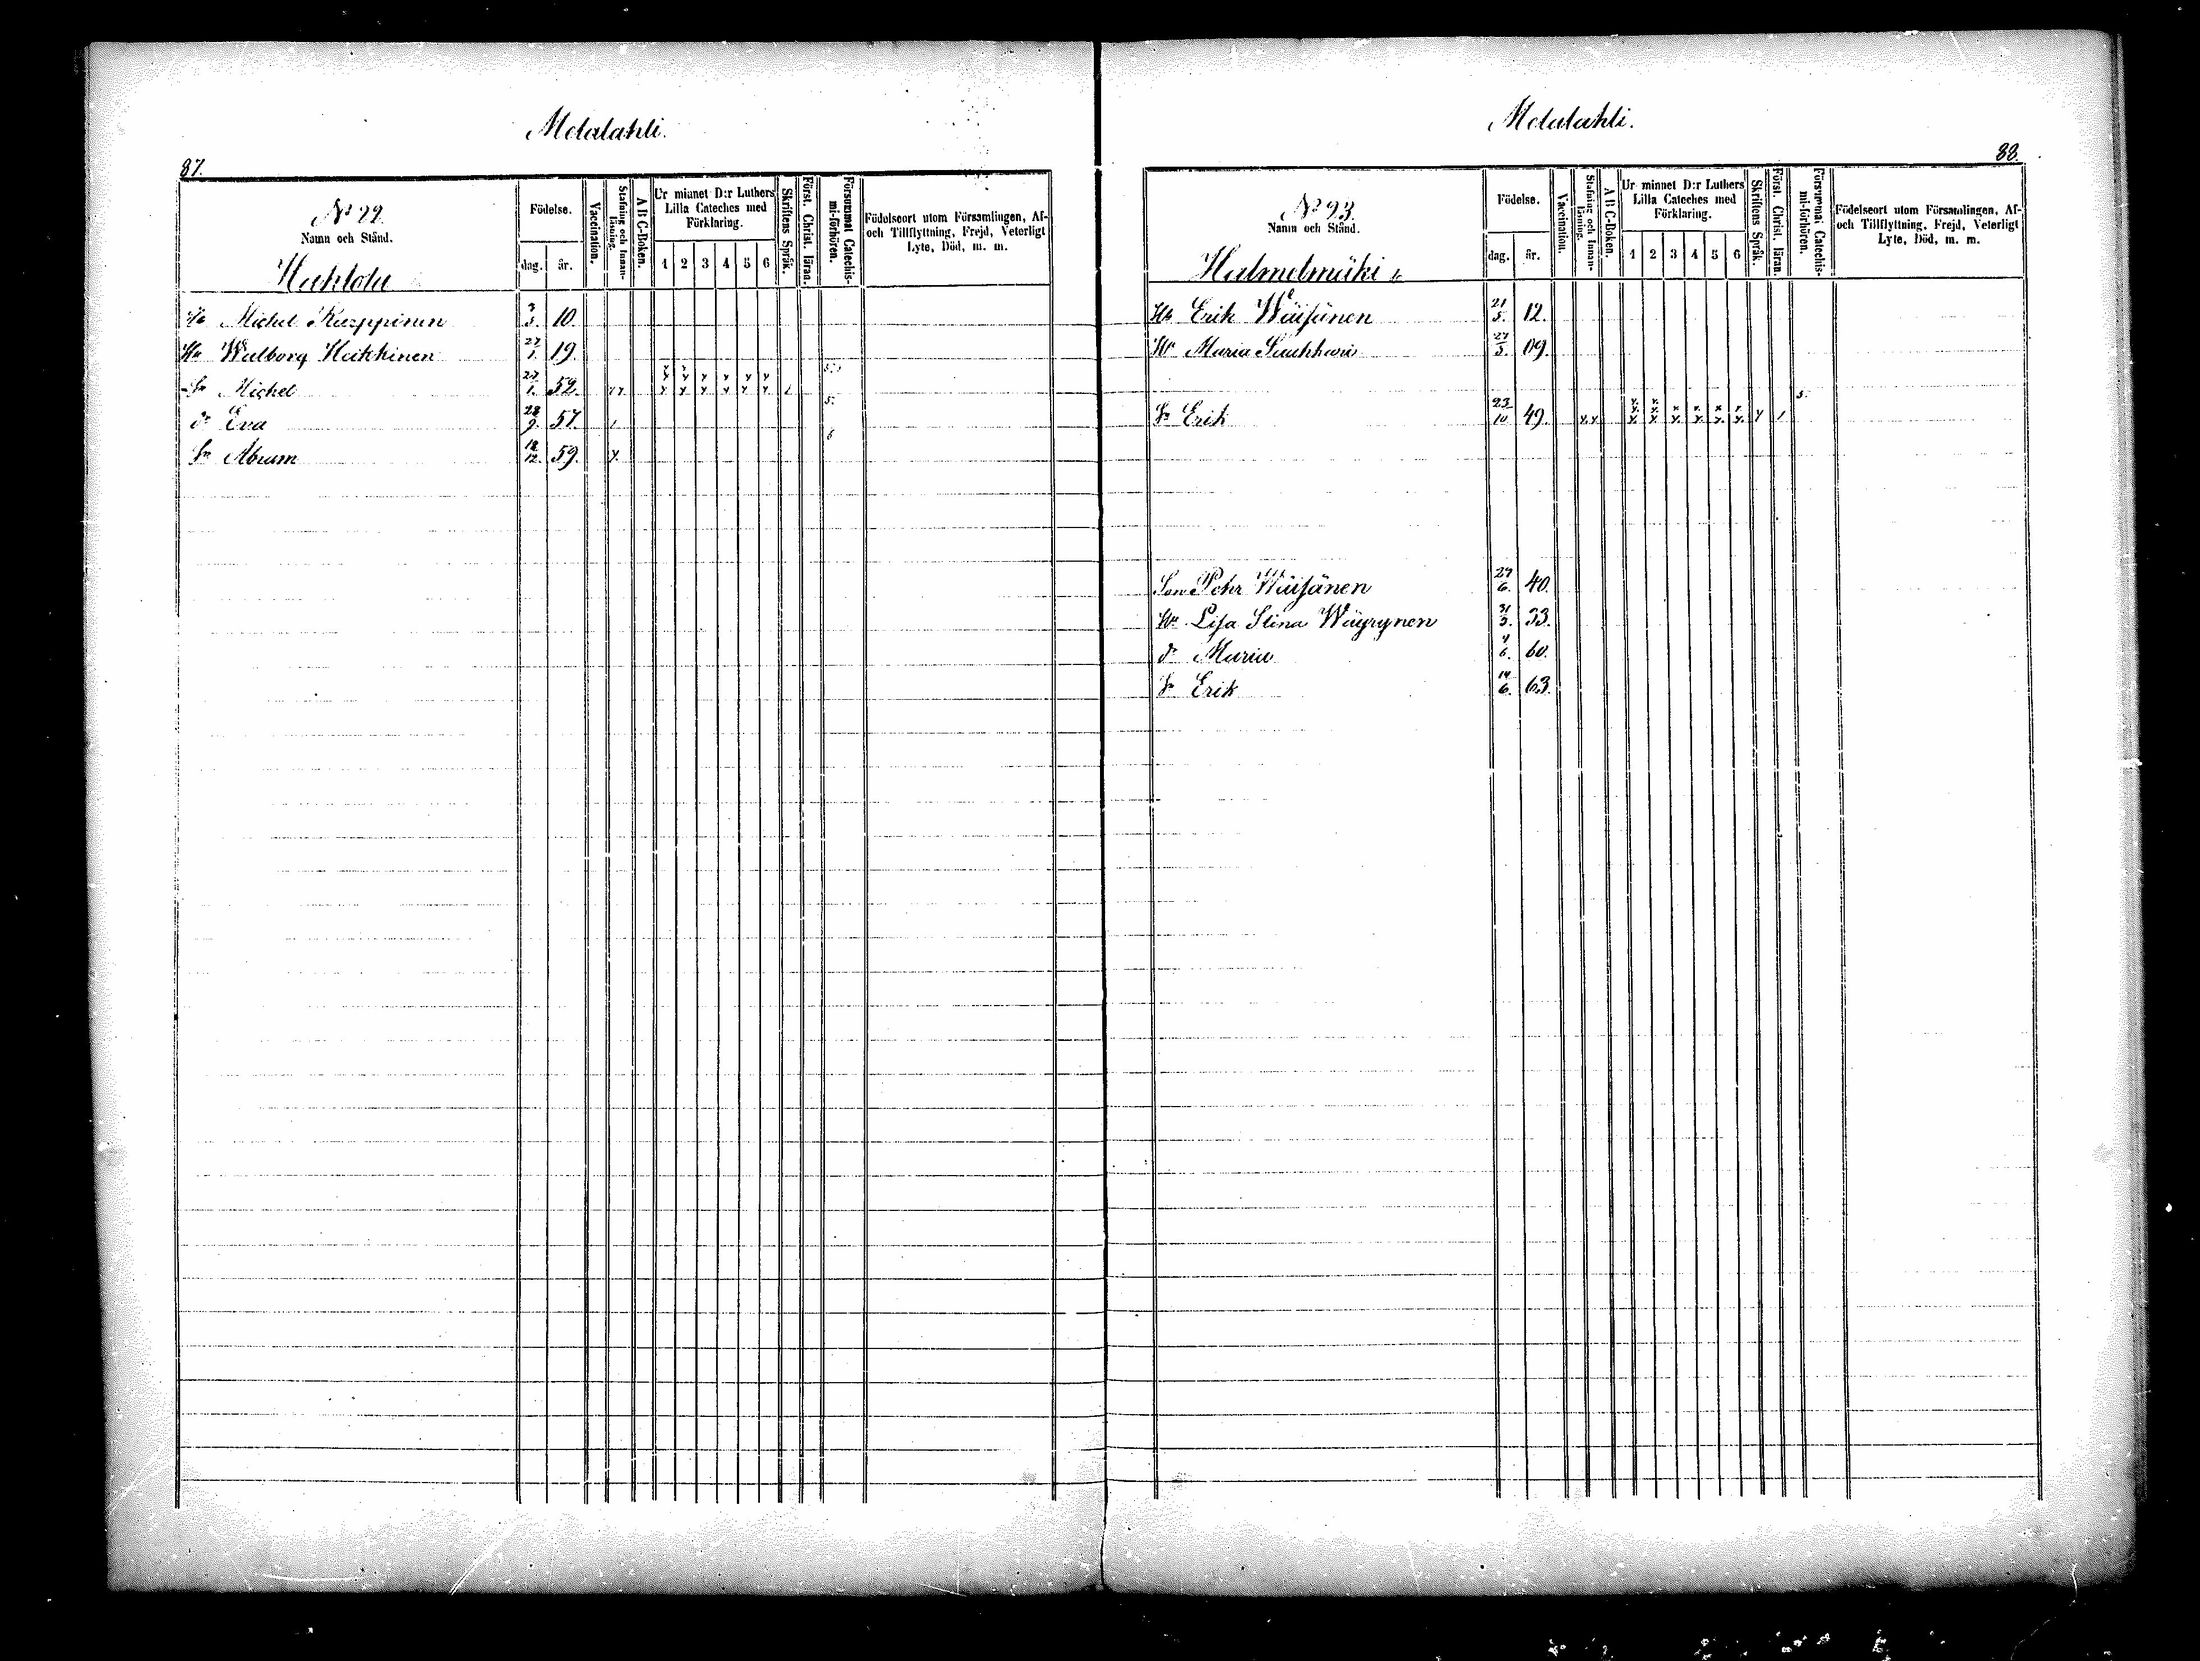 Melalahti.
87.
Nº 22.
Namn och Stånd.
Födelse.
dag. år.
Vaccination.
Stafning och Innanläsning.
A B C-Boken.
Ur minnet D:r Luthers Lilla Cateches med Förklaring.
1 2 3 4 5 6
Skriftens Språk.
Först. Christ. läran.
Försummat Catechismi-förhören.
Födelseort utom Församlingen, Af-
och Tillflyttning, Frejd, Veterligt
Lyte, Död, m. m.
Michel Karppinen 3/3. 10.
Hu Walborg Heikkinen 27/1. 19.
Sn Michel 27/1. 52.
dr Eva 28/9. 57. 5.
Sn Abram 18/12. 59. 6
Melalahti.
88.
Nº 23.
Namn och Stånd.
Halmelmäki
Födelse.
dag. år.
Vaccination.
Stafning och Innanläsning.
A B C-Boken.
Ur minnet D:r Luthers Lilla Cateches med Förklaring.
1 2 3 4 5 6
Skriftens Språk.
Först. Christ. läran.
Försummat Catechismi-förhören.
Födelseort utom Församlingen, Af-
och Tillflyttning, Frejd, Veterligt
Lyte, Död, m. m.
Erik Wäisänen 21/5. 12.
Hu Maria 27/3. 09.
Sn Erik 23/10 49. 5.
Son Pehr Wäisänen 29/6. 40.
Hu Lisa Stina Wäyrynen 31/3. 33.
dr Maria 4/6. 60.
Sn Erik 14/6. 63.